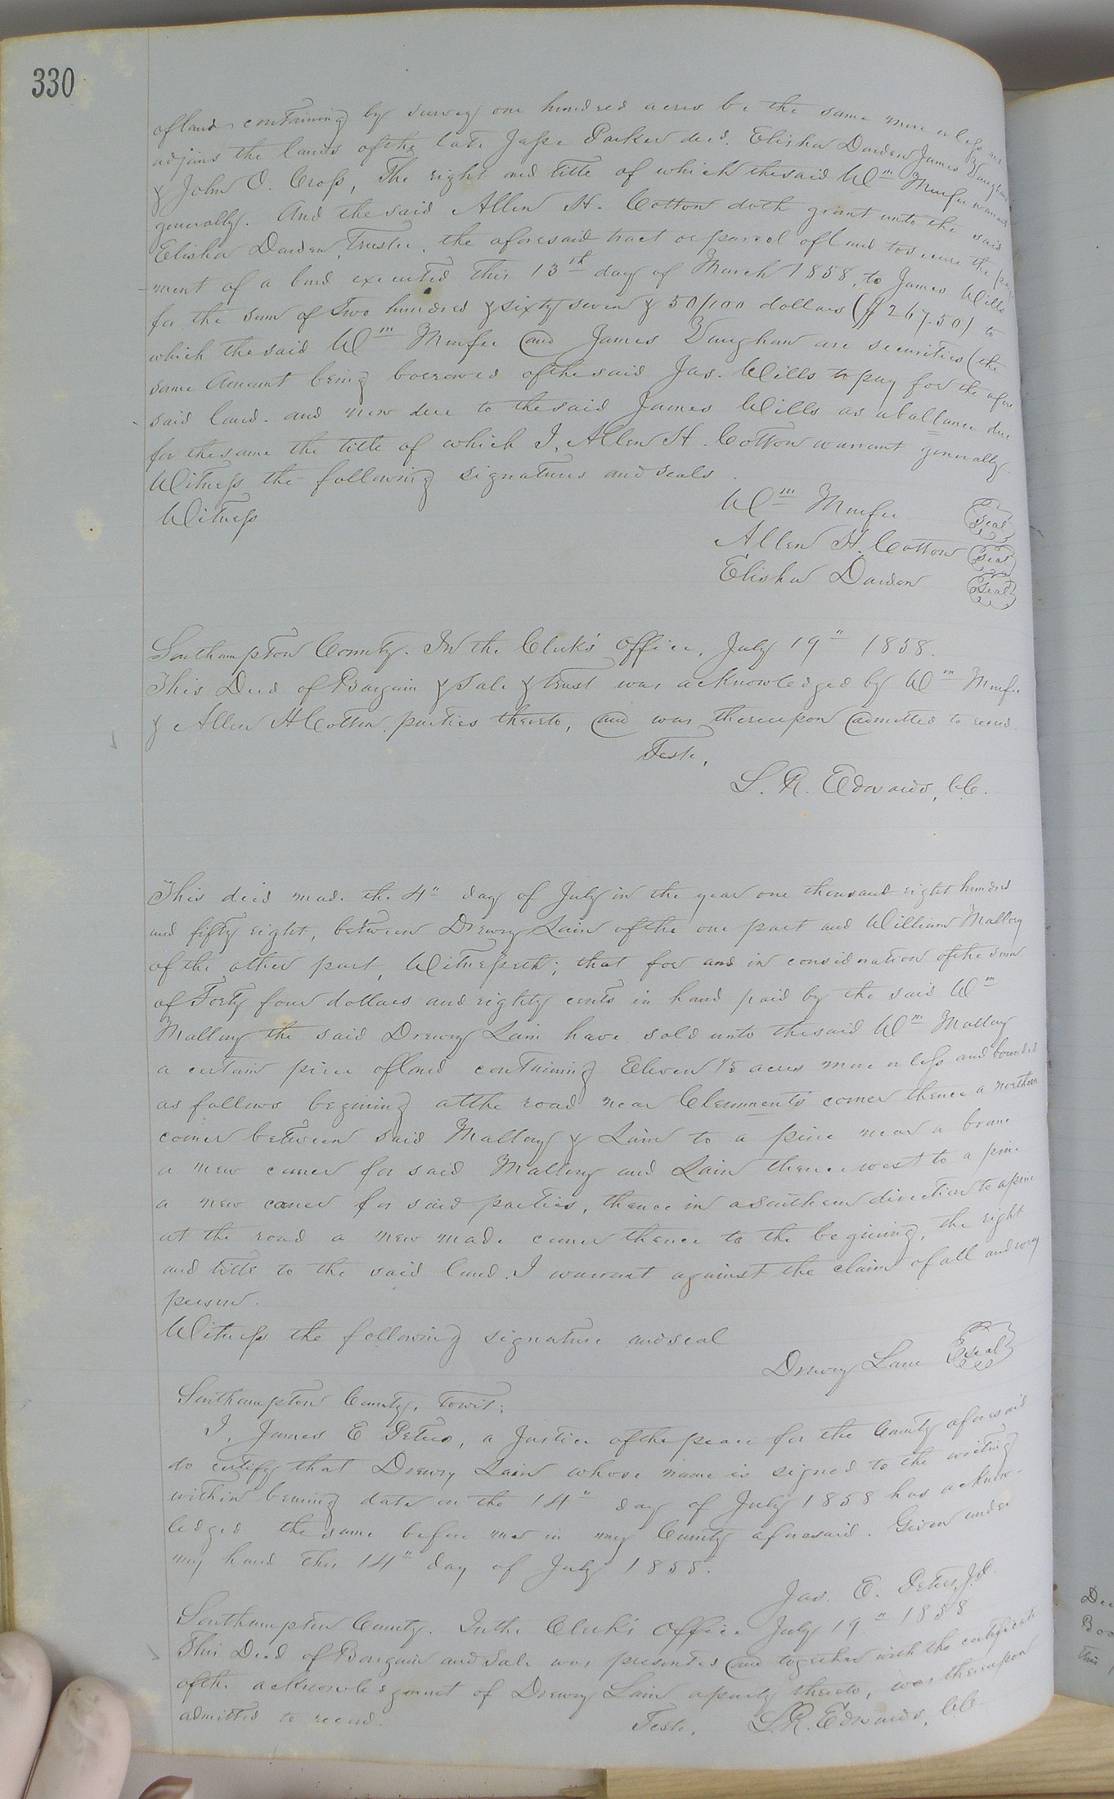 330
of land containing by survey one hundred acres be the same more or less and
adjoins the lands of the late Jesse Parker decd. Elisha Darden James Vaughan
& John O. Cross, The right and title of which the said Wm Murfee warrant
generally. And the said Allen H. Cotton doth grant unto the said
Elisha Darden, Trustee, the aforesaid tract or parcel of land to secure the pay
ment of a bond executed this 13th day of March 1858, to James Wills
for the sum of Two hundred & sixty seven & 50/100 dollars ($267.50) to
which the said Wm Murfee and James Vaughan are securities (the
same amount being borrowed of the said Jas. Wills to pay for the afore
said land. and now due to the said James Wills as a ballance due
for the same the title of which I, Allen H. Cotton warrant generally.
Witness the following signatures and seals.
Witness
Wm Murfee Seal
Allen H. Cotton Seal
Elisha Darden Seal
Southampton County. In the Clerk's Office, July 19" 1858.
This Deed of Bargain & Sale & trust was acknowledged by Wm Murfee
& Allen H Cotton, parties thereto, and was thereupon admitted to record.
Teste,
L. R. Edwards, C.C.
This deed made the 4" day of July in the year one thousand eight hundred
and fifty eight, between Drewry Lain of the one part and William Mallory
of the other part, Witnesseth; that for and in consideration of the sum
of Forty four dollars and eighty cents in hand paid by the said Wm
Mallory the said Drewry Lain have sold unto the said Wm Mallory
a certain piece of land containing Eleven 1/5 acres more or less and bounded
as follows begining at the road near Clements corner thence a northern
corner between said Mallory & Lain to a pine near a
a new corner for said Mallory and Lain thence west to a pine
a new corner for said parties, thence in a Southern direction to a pine
at the road a new made corner thence to the begining, the right
and title to the said land. I warrant against the claim of all and every
person.
Witness the following signature and seal
Drewry Lane Seal
Southampton County, Towit;
I, James E Peters, a Justice of the peace for the County aforesaid
do certify that Drewry Lain whose name is signed to the writing
within bearing date on the 14" day of July 1858 has acknow-
ledged the same before me in my County aforesaid. Given under
my hand this 14" day of July 1858.
Jas. E. Peters, J.P.
Southampton County. In the Clerk's Office July 19" 1858
This Deed of Bargain and Sale was presented and together with the certificate
of the acknowledgment of Drewry Lain a party thereto, was thereupon
admitted to record.
Teste, L. R. Edwards, C.C.